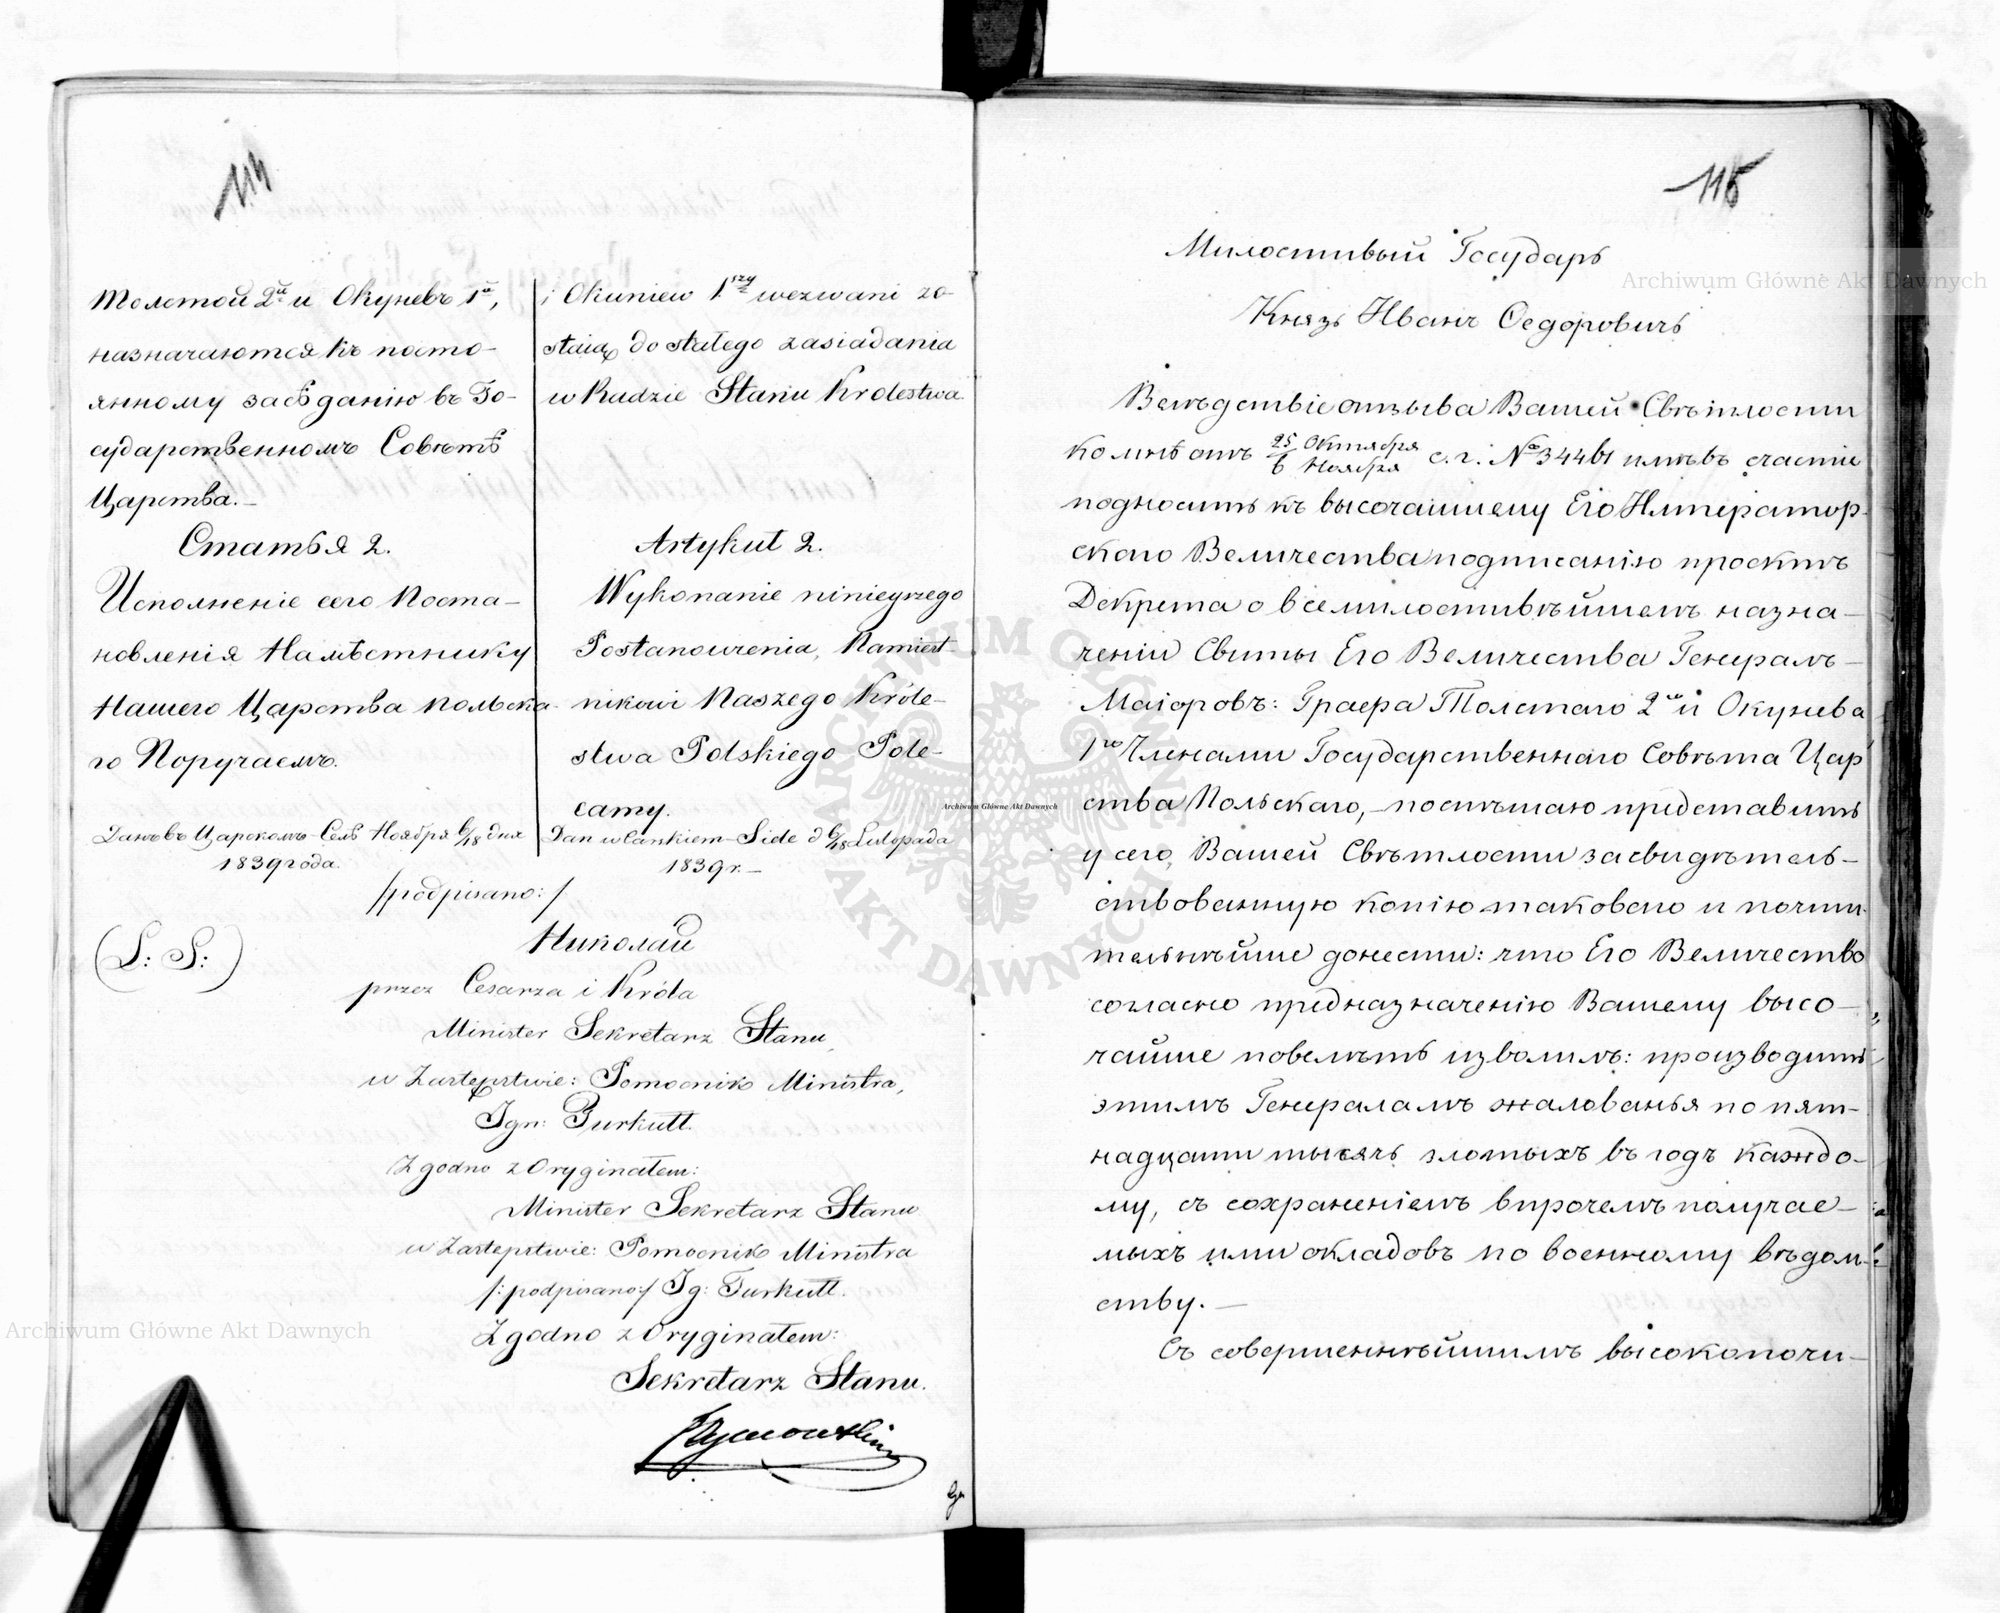 114
Толстой 2й и Окуневъ 1й,
назначаются къ посто-
янному засѣданію въ Го-
сударственномъ Совѣтѣ
Царства.-
Статья 2.
Исполненіе сего Поста-
новленія Намѣстнику
Нашего Царства Польска-
го Поручаемъ.
Данъ въ Царскомъ-Селѣ Ноября 6/18 дня
1839 года.
i Okuniew 1szy wezwani zo-
staią do stałego zasiadania
w Radzie Stanu Królestwa.
Artykuł 2.
Wykonanie ninieyszego
Postanowienia, Namiest-
nikowi Naszego Króle-
stwa Polskiego Pole-
camy.
Dan w Carskiem-Siele d 6/18 Listopada
1839 r.-
/podpisano:/
(L: S:)
Николай
przez Cesarza i Króla
Minister Sekretarz Stanu,
w Zastępstwie: Pomocnik Ministra,
Ign: Turkułł.
Zgodno z Oryginałem:
Minister Sekretarz Stanu
w Zastępstwie: Pomocnik Ministra
/:podpisano:/ Ig: Turkułł.
Zgodno z Oryginałem:
Sekretarz Stanu.
Tymowski
115
Милостивый Государь
Князь Иванъ Ѳедоровичъ
Вслѣдствіе отзыва Вашей Свѣтлости
ко мнѣ отъ 25 Октября / 6 Ноября с. г. № 34461 имѣвъ счастіе
подносить къ высочайшему Его Император-
скаго Величества подписанію проэктъ
Декрета о всемилостивѣйшемъ назна-
ченіи Свиты Его Величества Генералъ-
Маіоровъ: Графа Толстаго 2го и Окунева
1го Членами Государственнаго Совѣта Цар-
ства Польскаго,- поспѣшаю представить
у сего, Вашей Свѣтлости засвидѣтель-
ствованную копію таковаго и почти-
тельнѣйше донести: что Его Величество
согласно предназначенію Вашему высо-
чайше повелѣть изволилъ: производить
этимъ Генераламъ жалованья по пят-
надцати тысячъ злотыхъ въ годъ каждо-
му, съ сохраненіемъ впрочемъ получае-
мыхъ ими окладовъ по военному вѣдом-
ству.-
Съ совершеннѣйшимъ высокопочи-
Archiwum Główne Akt Dawnych
Archiwum Główne Akt Dawnych
Archiwum Główne Akt Dawnych
ARCHIWUM GŁÓWNE AKT DAWNYCH